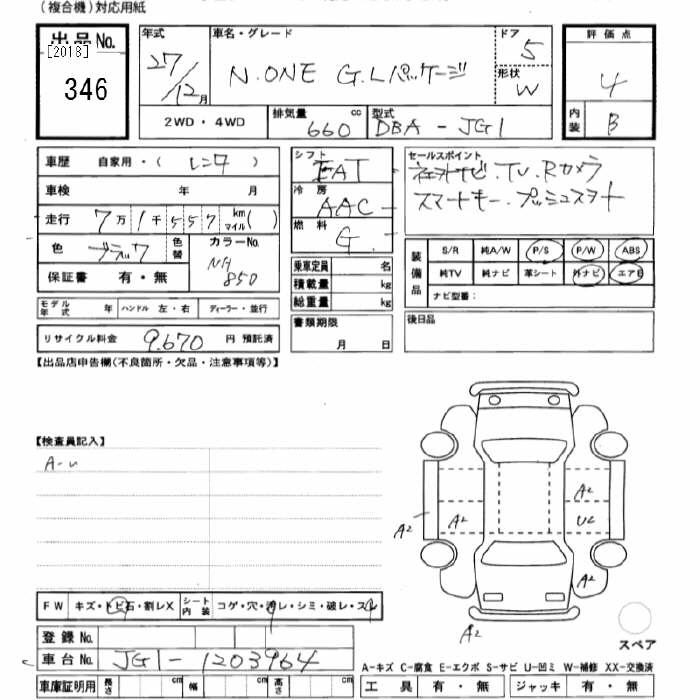 (複合機)対応用紙
出品No.
[2013]
346
年式
27/12月
車名・グレード
N.ONE G.Lパッケージ
ドア
5
形状
W
評価点
4
内装
B
2WD・4WD
排気量
660 cc
型式
DBA-JG1
車歴 自家用・(レンタ)
車検 年 月
走行 7万1千557 km マイル( )
色 ブラック 色替
カラーNo.
NH
850
保証書 有・無
モデル年式 年 ハンドル 左・右 ディーラー・並行
リサイクル料金 9.670 円 預託済
シフト
FAT
冷房
AAC
燃料
G
乗車定員 名
積載量 kg
総重量 kg
書類期限
月 日
セールスポイント
ナビ.TV.Rカメラ
スマートキー.プッシュスタート
装備品
S/R 純A/W P/S P/W ABS
純TV 純ナビ 革シート 外ナビ エアB
ナビ型番:
後日品
【出品店申告欄(不良箇所・欠品・注意事項等)】
【検査員記入】
A-U
A2
A2
A2
U2
A2
A2
スペア
FW キズ・トビ石・割レX シート内装 コゲ・穴・汚レ・シミ・破レ・スレ
登録No.
車台No. JG1-1203964
車庫証明用 長さ cm 幅 cm 高さ cm
A-キズ C-腐食 E-エクボ S-サビ U-凹ミ W-補修 XX-交換済
工具 有・無 ジャッキ 有・無